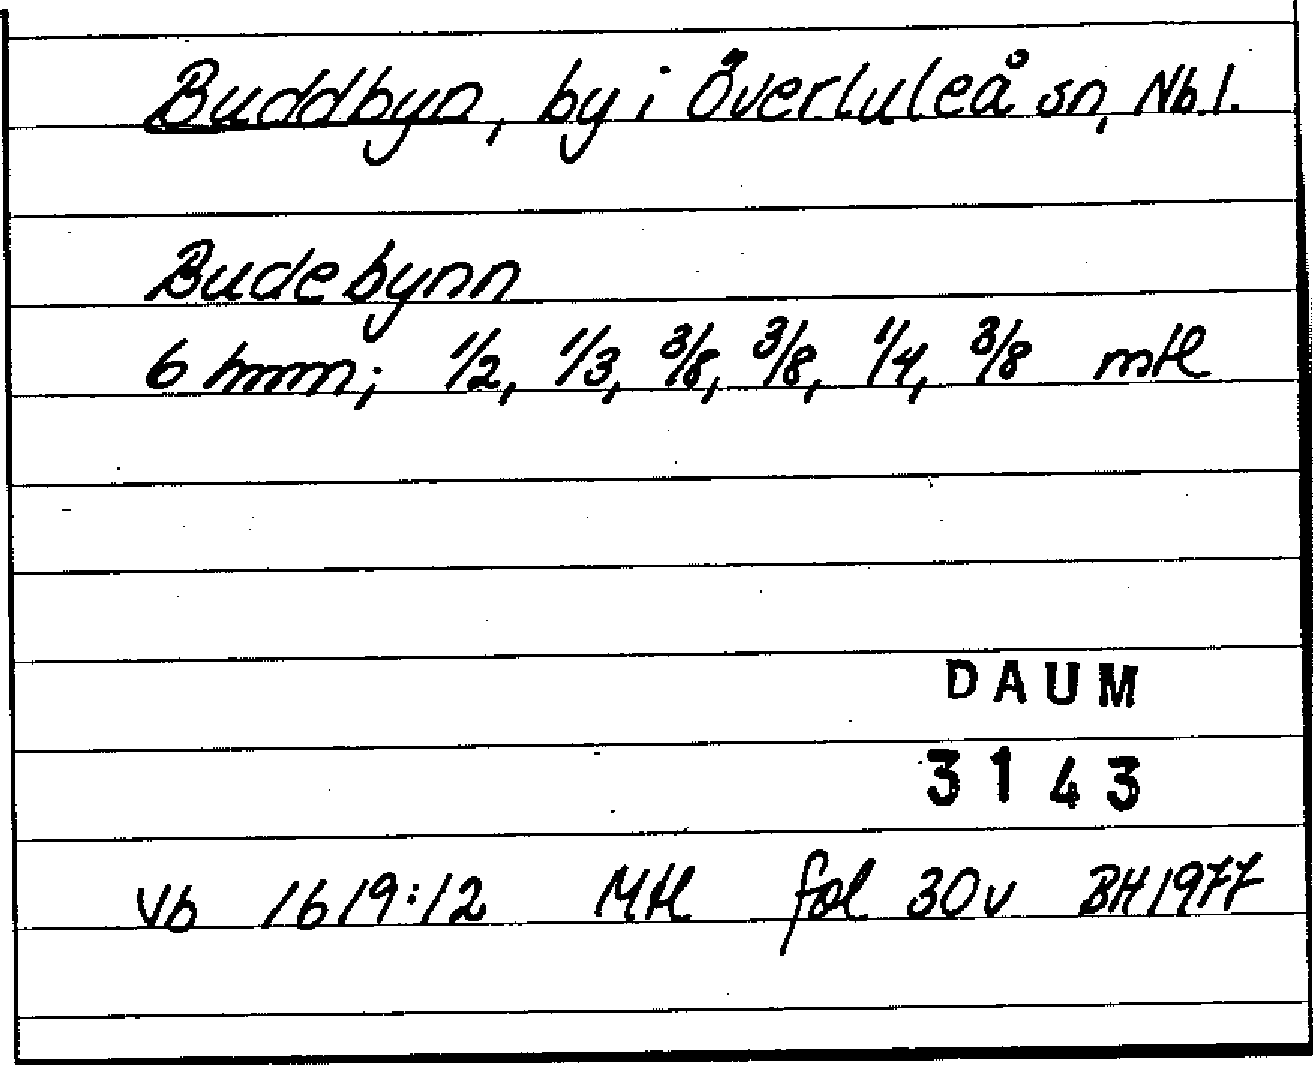 Buddbyn, by i Överluleå sn, Nb.l.
Budebynn
6 hmm; 1/2, 1/3, 3/8, 3/8, 1/4, 3/8 mtl
DAUM
3143
Vb 1619:12 Mtl fol 30v BH1977